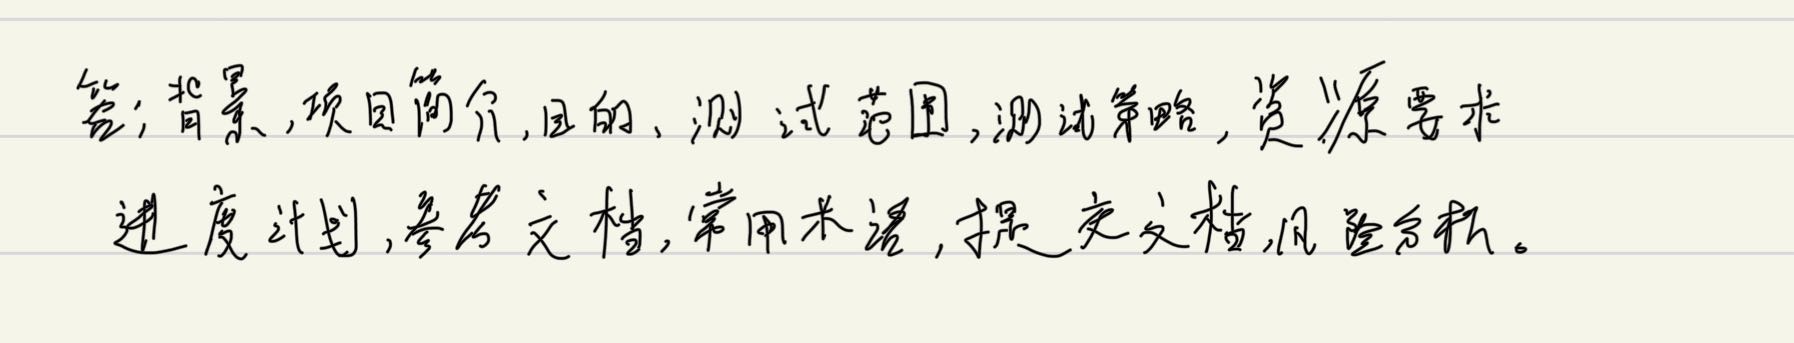 答:背景,项目简介,目的、测试范围,测试策略,资源要求
进度计划,参考文档,常用术语,提交文档,风险分析。